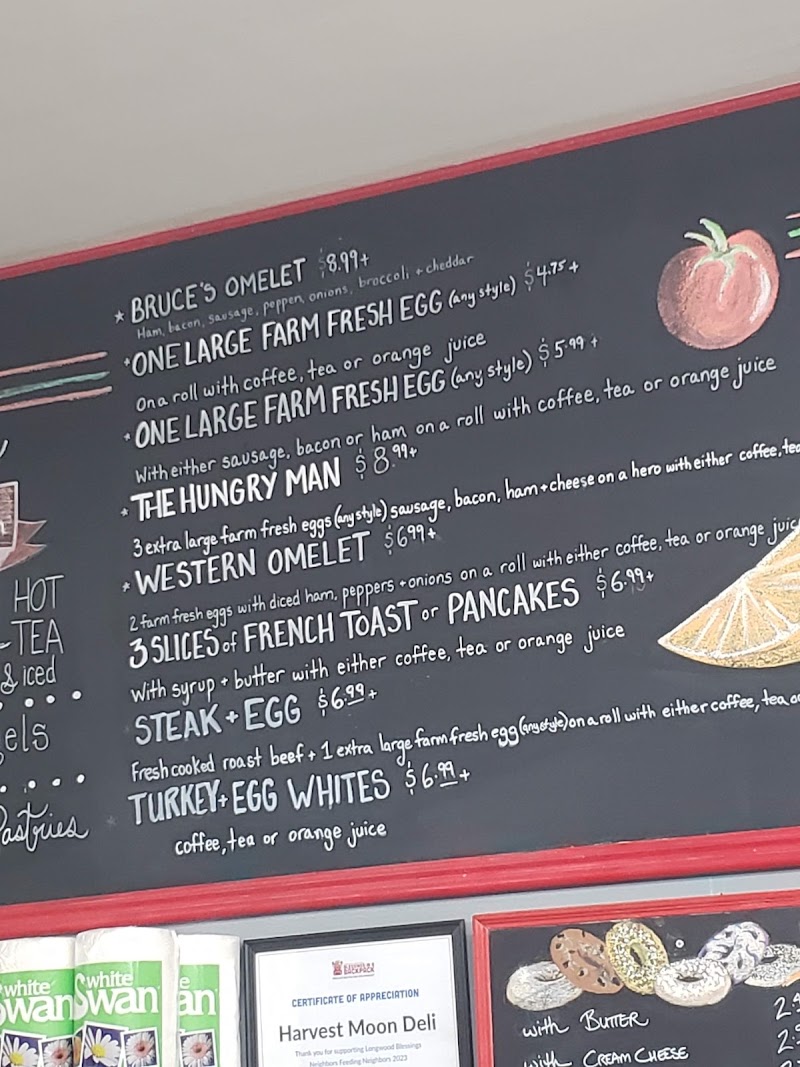 * BRUCE'S OMELET $8.99+
Ham, bacon, sausage, pepper, onions, broccoli + cheddar
* ONE LARGE FARM FRESH EGG (any style) $4.75+
On a roll with coffee, tea or orange juice
* ONE LARGE FARM FRESH EGG (any style) $5.99+
With either sausage, bacon or ham on a roll with coffee, tea or orange juice
* THE HUNGRY MAN $8.99+
3 extra large farm fresh eggs (any style) sausage, bacon, ham + cheese on a hero with either coffee, tea
* WESTERN OMELET $6.99+
2 farm fresh eggs with diced ham, peppers + onions on a roll with either coffee, tea or orange juic
3 SLICES of FRENCH TOAST or PANCAKES $6.99+
With syrup + butter with either coffee, tea or orange juice
STEAK + EGG $6.99+
Fresh cooked roast beef + 1 extra large farm fresh egg (any style) on a roll with either coffee, tea or
TURKEY + EGG WHITES $6.99+
coffee, tea or orange juice
HOT
-TEA
& iced
els
Pastries
white
Swan
white
Swan
e
an
CERTIFICATE OF APPRECIATION
Harvest Moon Deli
Thank you for supporting Longwood Blessings
Neighbors Feeding Neighbors 2023
with BUTTER
with CREAM CHEESE